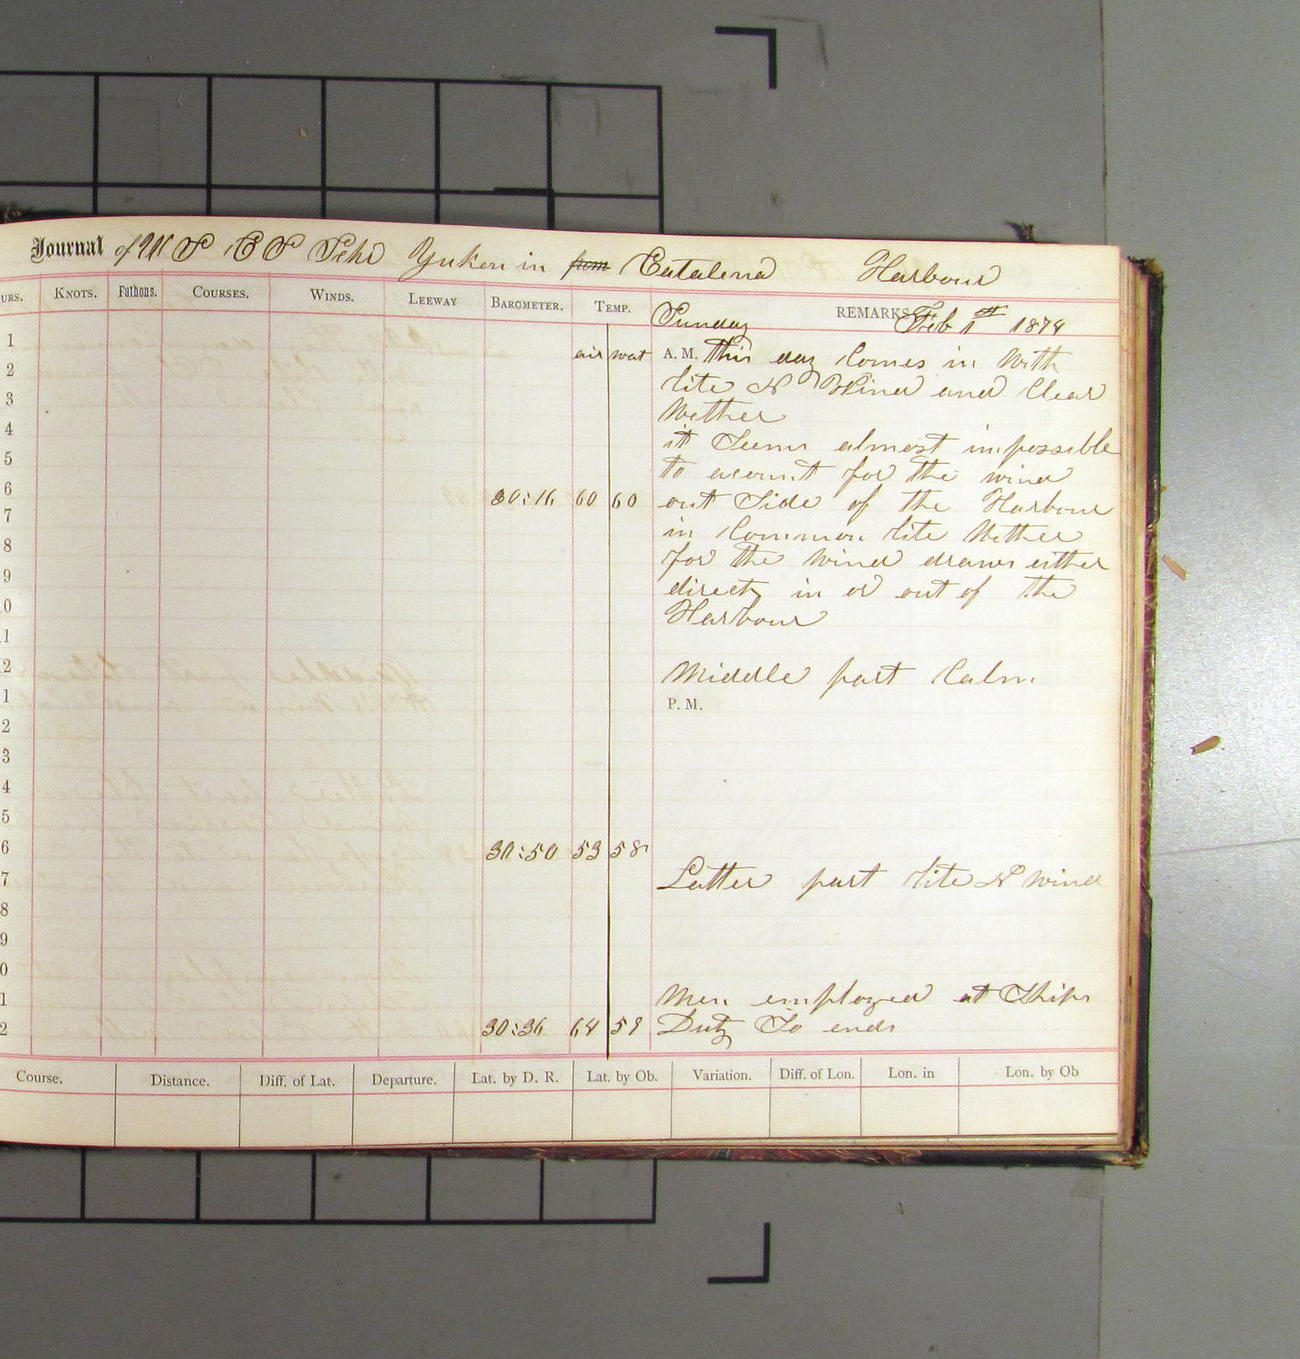 Journal of U S C S Schr Yukon in from Catalena Harbour
URS. KNOTS. Fathoms. COURSES. WINDS. LEEWAY BAROMETER. TEMP. REMARKS
Sunday Feb 1st 1874
1 air wat A. M. this day Comes in With
2 lite N Wind and Clear
3 Wether
4 it Seems almost impossible
5 to acount for the wind
6 30:16 60 60 out Side of the Harbour
7 in Common lite Wether
8 for the Wind draws either
9 direct in or out of the
0 Harbour
1
2 Middle part Calm
1 P. M.
2
3
4
5
6 30:50 53 58
7 Latter part lite N Wind
8
9
0
1 Men employed at Ships
2 30:36 64 59 Duty So ends
Course. Distance. Diff. of Lat. Departure. Lat. by D. R. Lat. by Ob. Variation. Diff. of Lon. Lon. in Lon. by Ob